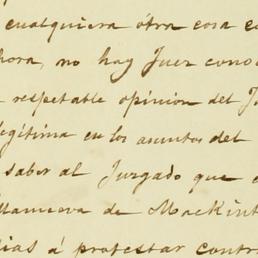 cualquiera otra cosa
hora, no hay Juez cono
respetable opinion del J
egítima en los asuntos del
saber al Juzgado que
llanueva de MacKint
ias á protestar contr